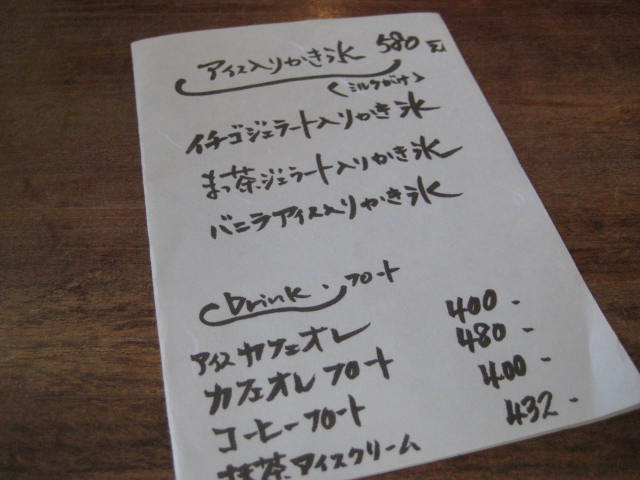 アイス入りかき氷 580円
<ミルクがけ>
イチゴジェラート入りかき氷
まっ茶ジェラート入りかき氷
バニラアイス入りかき氷
Drink・フロート
アイスカフェオレ 400-
カフェオレフロート 480-
コーヒーフロート 400-
抹茶アイスクリーム 432-